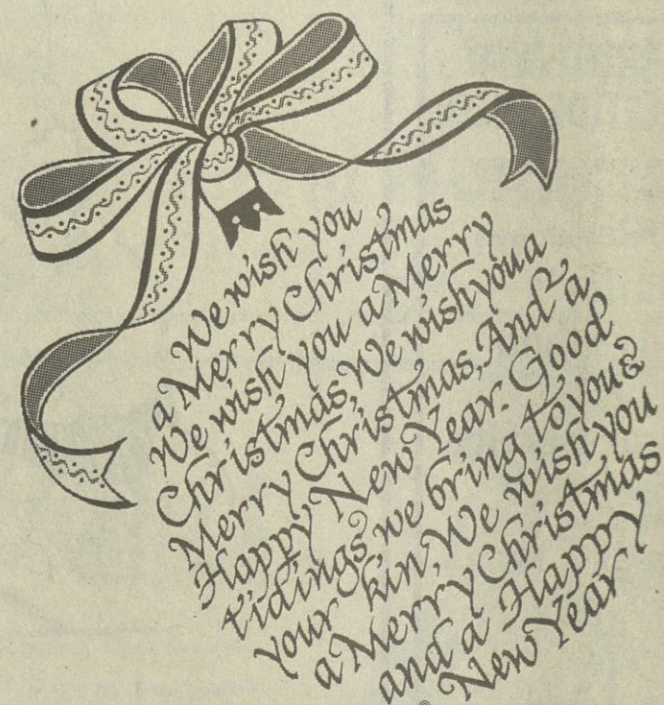 We wish you
a Merry Christmas
We wish you a Merry
Christmas, We wish you a
Merry Christmas, And a
Happy New Year. Good
tidings we bring to you &
your kin, We wish you
a Merry Christmas
and a Happy
New Year